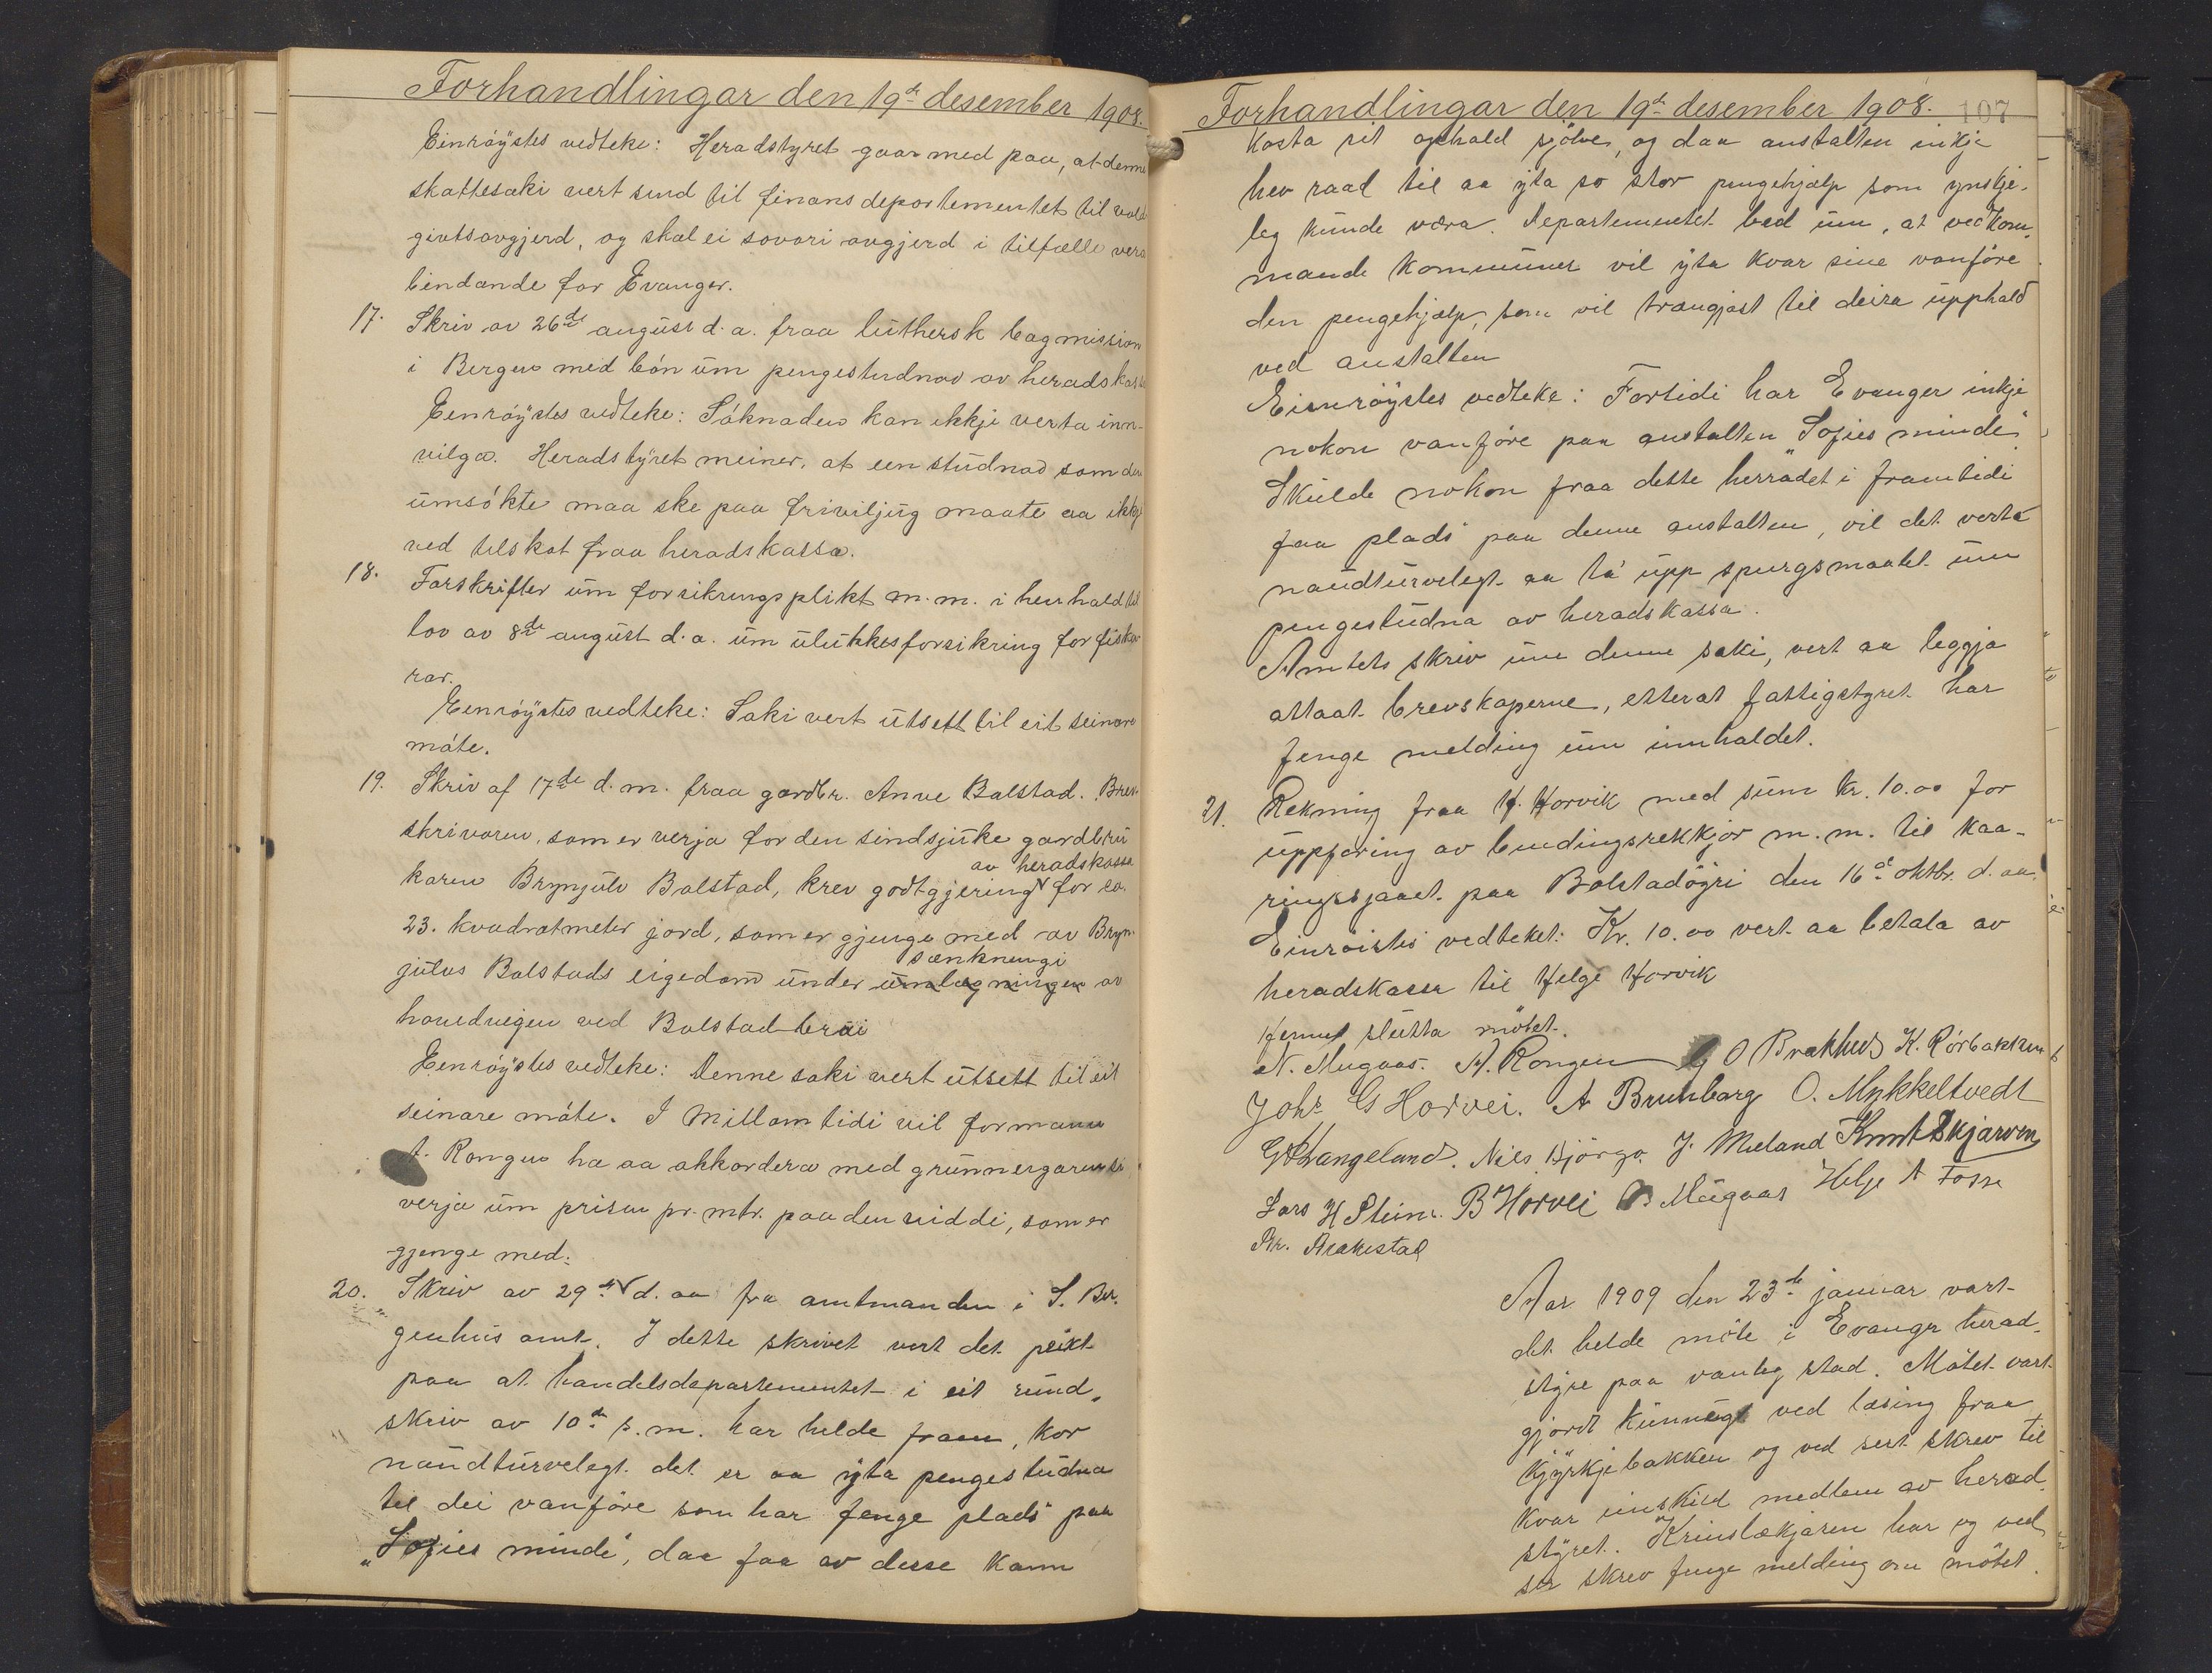 Forhandlingar den 19de desember 1908.
Einröystes vedteke: Heradstyret gaar med paa, at denne
skattesaki vert send til finansdepartementet til vold-
giftsavgjerd, og skal ei sovori avgjerd i tilfælle vera
bindande for Evanger.
17. Skriv av 26de august d. a. fraa luthersk lagmission
i Bergen med bön üm pengestudnad av heradskassa
Einröystes vedteke: Söknaden kan ikkji verta inn-
vilga. Heradstyret meiner, at ein studnad som den
ümsökte maa ske paa friviljüg maate aa ikkji
ved tilskot fraa heradskassa.
18. Forskrifter üm forsikringsplikt m.m. i henhald til
lov av 8de august d. a. üm ülukkesforsikring for fiska-
rar.
Einröystes vedteke: Saki vert ütsett til eit seinare
möte.
19. Skriv af 17de d. m. fraa gardbr. Anve Bolstad. Brev-
skrivaren, som er verja for den sindsjüke gardbrü
karen Brynjülv Bolstad, krev godtgjering av heradskassa for ca.
23. kvadratmeter jord, som er gjenge med av Bryn-
jülvs Bolstads eigedom ünder ümlægningen sænkningi av
hovedveigen ved Bolstad brüi
Einröystes vedteke: Denne saki vert ütsett til eit
seinare möte. I millomtidi vil formann
A. Rongen ha aa akkordera med grünneigarens
verja üm prisen pr. mtr. paa den viddi, som er
gjenge med.
20. Skriv av 29de d. aa fra amtmanden i S. Ber-
genhüs amt. I dette skrivet vert det peikt
paa at handelsdepartementet i eit ründ-
skriv av 10de s. m. har helde fram, kor
naüdtürvelegt det er aa yta pengestüdna
til dei vanföre som har fenge plads paa
"Sofies minde", daa faa av desse kann
Forhandlingar den 19de desember 1908. 107
kosta sit ophald sjölve, og daa anstalten inkje
hev raad til aa yta so stor pengehjælp som ynskje-
leg künde væra. Departementet bed üm, at vedkom-
mande kommüner vil yta kvar sine vanföre
den pengehjælp, som vil trængjast til deira üpphald
ved anstalten
Einröystes vedteke: Fortidi har Evanger inkje
nokon vanföre paa anstalten "Sofies minde".
Skülde nokon fraa dette herradet i framtidi
faa plads paa denne anstalten, vil det verta
naüdtürvelegt aa ta üpp spursmaalet üm
pengestüdna av heradskassa.
Amtets skriv üm denne saki, vert aa leggja
attaat brevskaperne, etterat fattigstyret har
fenge melding üm innhaldet.
21. Rekning fraa H. Horvik med süm kr. 10.00 for
üppföring av bindingsrekkjor m. m. til kaa-
ringssjaaet paa Bolstadöyri den 16de oktbr. d. aa.
Einröistes vedteket: Kr. 10.00 vert aa betala av
heradskassa til Helge Horvik
Hermed slütta mötet.
N. Mugaas. A. Rongen O Brækhus K. Rörbakken
Johs G Horvei. A Brunborg O. Mykkeltvedt
G Helangeland. Nils Björgo. J. Mieland Knut Skjærven
Lars H Steine. B Horvei B Mügaas Helje A Fosse
Br. Brakestad
Aar 1909 den 23de januar vart
det helde möte i Evanger herad-
styre paa vanleg stad. Mötet vart
gjort künnügt ved læsing fraa
kjyrkjebakken og ved sert skrev til
kvar einskild medlem av herad-
styret. Krinslækjaren har og ved
ser skrev fenge melding om mötet.